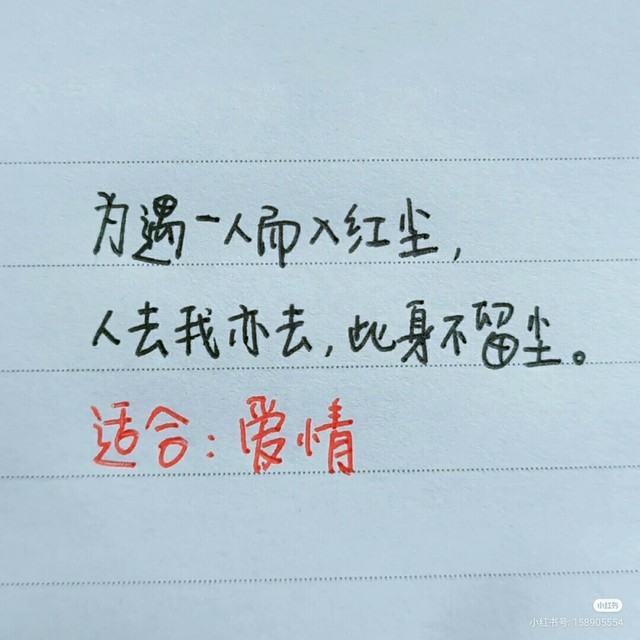 为遇一人而入红尘,
人去我亦去,此身不留尘。
适合:爱情
小红书
小红书号:158905554